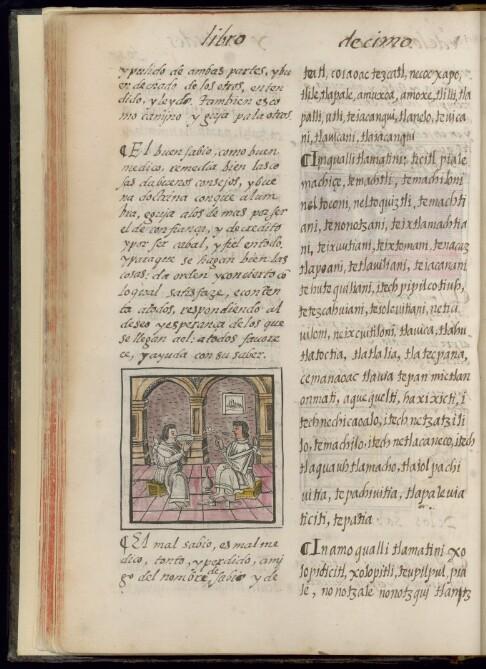 libro
decimo
y pulido de ambas partes, y bu
en dechado de los otros, enten
dido, y leydo. tambien es co
mo camino y guja pa la otros.
¶ El buen sabio, como buen
medico, remedia bien las co
sas da buenos consejos, y bue
na doctrina con que alum
bra, eguja alos de mas por ser
el de confiança, y de credito
y por ser cabal, y fiel en todo.
y para que se hagan bien las
cosas: da orden y concierto cō
lo qual satisfaze, e conten
ta atodos, respondiendo al
deseo y esperança de los que
se llegan ael: atodos favore
ce, y ayuda con su saber.
¶ El mal sabio, es mal me
dico, tonto, y perdido, amj
go del nombre de sabio y de
teatl, coiaoac tezcatl, necoc xapo,
tlile, tlapale, amuxoa, amoxe, tlilli, tla
palli, utli, teiacanqui, tlanelo, tevica
ni, tlavicani, tlaiacanqui
¶ In qualli tlamatini: ticitl, piale
machize, temachtli, temachiloni
neltoconi, neltoquiztli, temachti
ani, tenonotzani, teixtlamachtia
ni, teixcuitiani, teixtomani, tenacaz
tlapoani, tetlaviliani, teiacanani
tehutequiliani, itech pipilcotiuh,
tetezcahuiani, teiolevitiani, netla
viloni, neixcuitiloni, tlavica, tlahu
tlatoctia, tlatlalia, tlatecpana,
cemanaoac tlavia tepan mictlan
onmati, aquequelti, haxixicti, i
tech nechicaoalo, itech netzatzili
lo, temachilo, itech netlacaneco, itech
tlaquauhtlamacho, tlaiolpachi
vitia, tepachivitia, tlapalevia
ticiti, tepatia
¶ In amo qualli tlamatini xo
lopiticitl, xolopitli, teupilpul, pia
le, nonotzale nonotzqui tlanitz